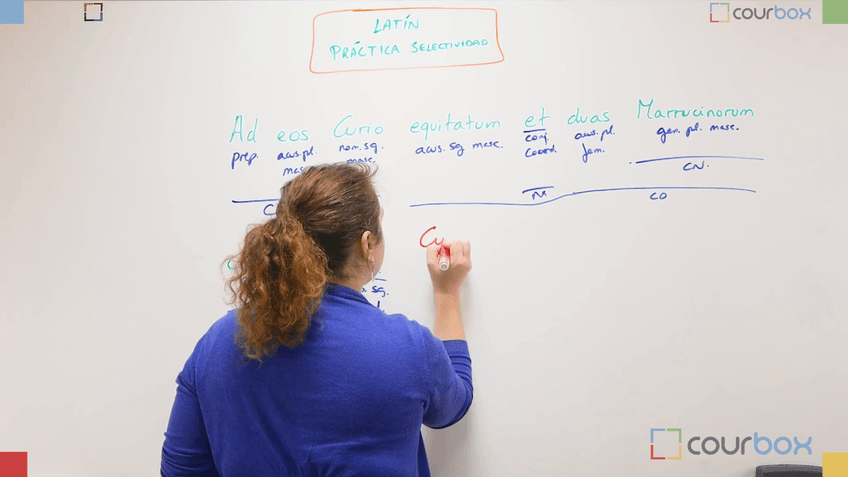 courbox
LATÍN
PRÁCTICA SELECTIVIDAD
Ad eos Curio equitatum et duas Marrucinorum
prep. acus.pl. masc. nom.sg. masc. acus. sg masc. conj. coord. acus.pl. fem. gen. pl. masc.
CN.
N. CD
Cu
sg.
courbox